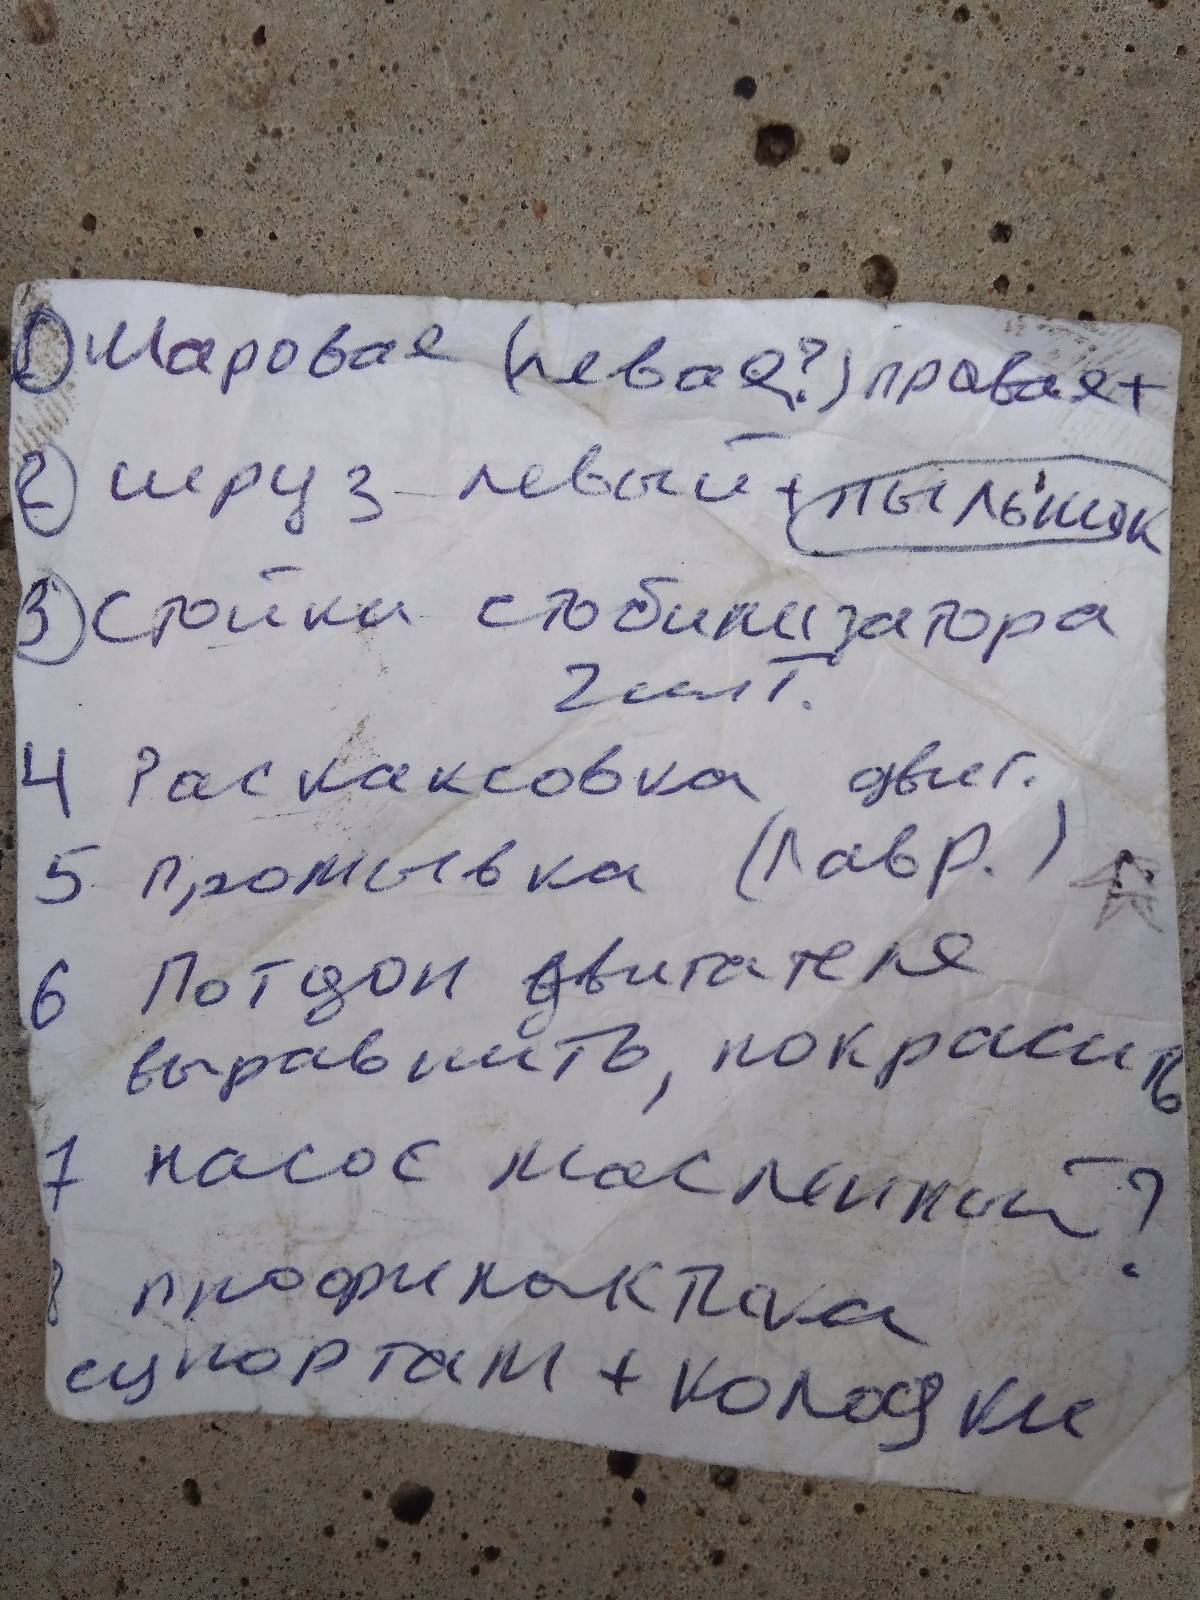 1) Шаровая (левая?) правая+
2) шруз левый + пыльник
3) Стойки стобилизатора
2 шт.
4 Раскаксовка двиг.
5 промывка (Лавр.)
6 Потдон двигателя
выравнить, покрасить
7 насос масленный?
8 профилактика
супортам + колодки